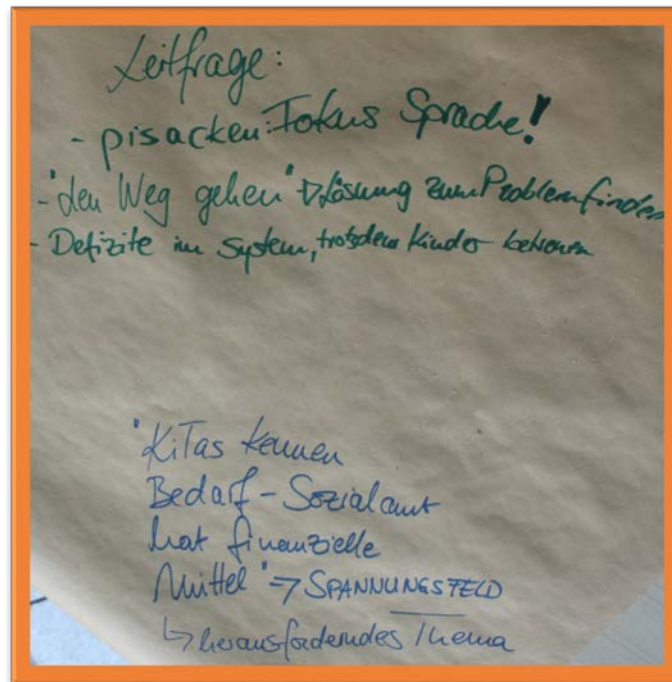 Leitfrage:
- pisacken: Fokus Sprache!
- "den Weg gehen" → Lösung zum Problem finden
- Defizite im System, trotzdem Kinder betreuen
"KiTas kennen
Bedarf - Sozialamt
hat finanzielle
Mittel" => SPANNUNGSFELD
↳ herausforderndes Thema